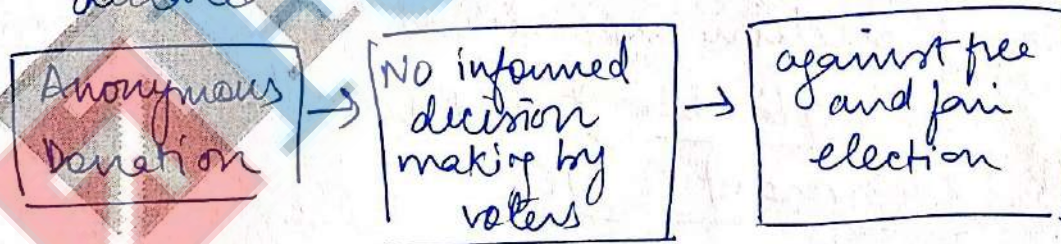 Anonymous
Donation
No informed
decision
making by
voters
against free
and fair
election